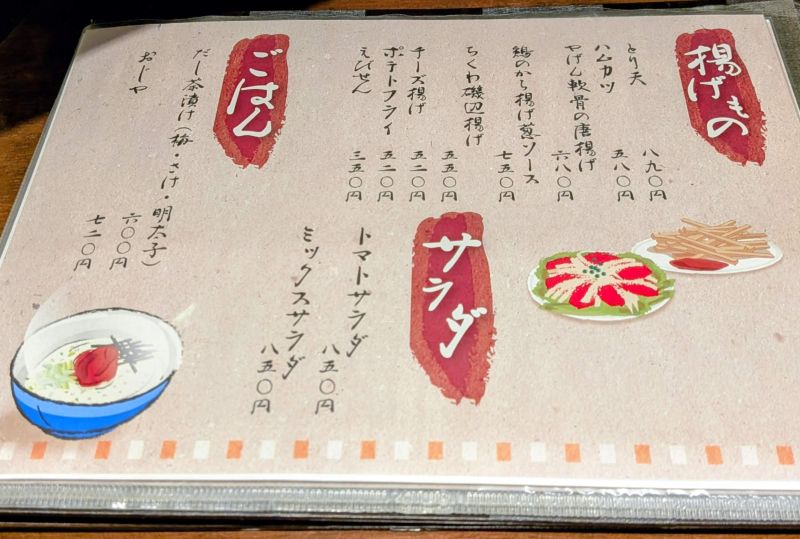 揚げもの
とり天 八九〇円
ハムカツ 五八〇円
やげん軟骨の唐揚げ 六八〇円
鶏のから揚げ葱ソース 七五〇円
ちくわ磯辺揚げ 五五〇円
チーズ揚げ 五二〇円
ポテトフライ 五二〇円
えびせん 三五〇円
サラダ
トマトサラダ 八五〇円
ミックスサラダ 八五〇円
ごはん
だし茶漬け（梅・さけ・明太子） 六〇〇円
おじや 七二〇円